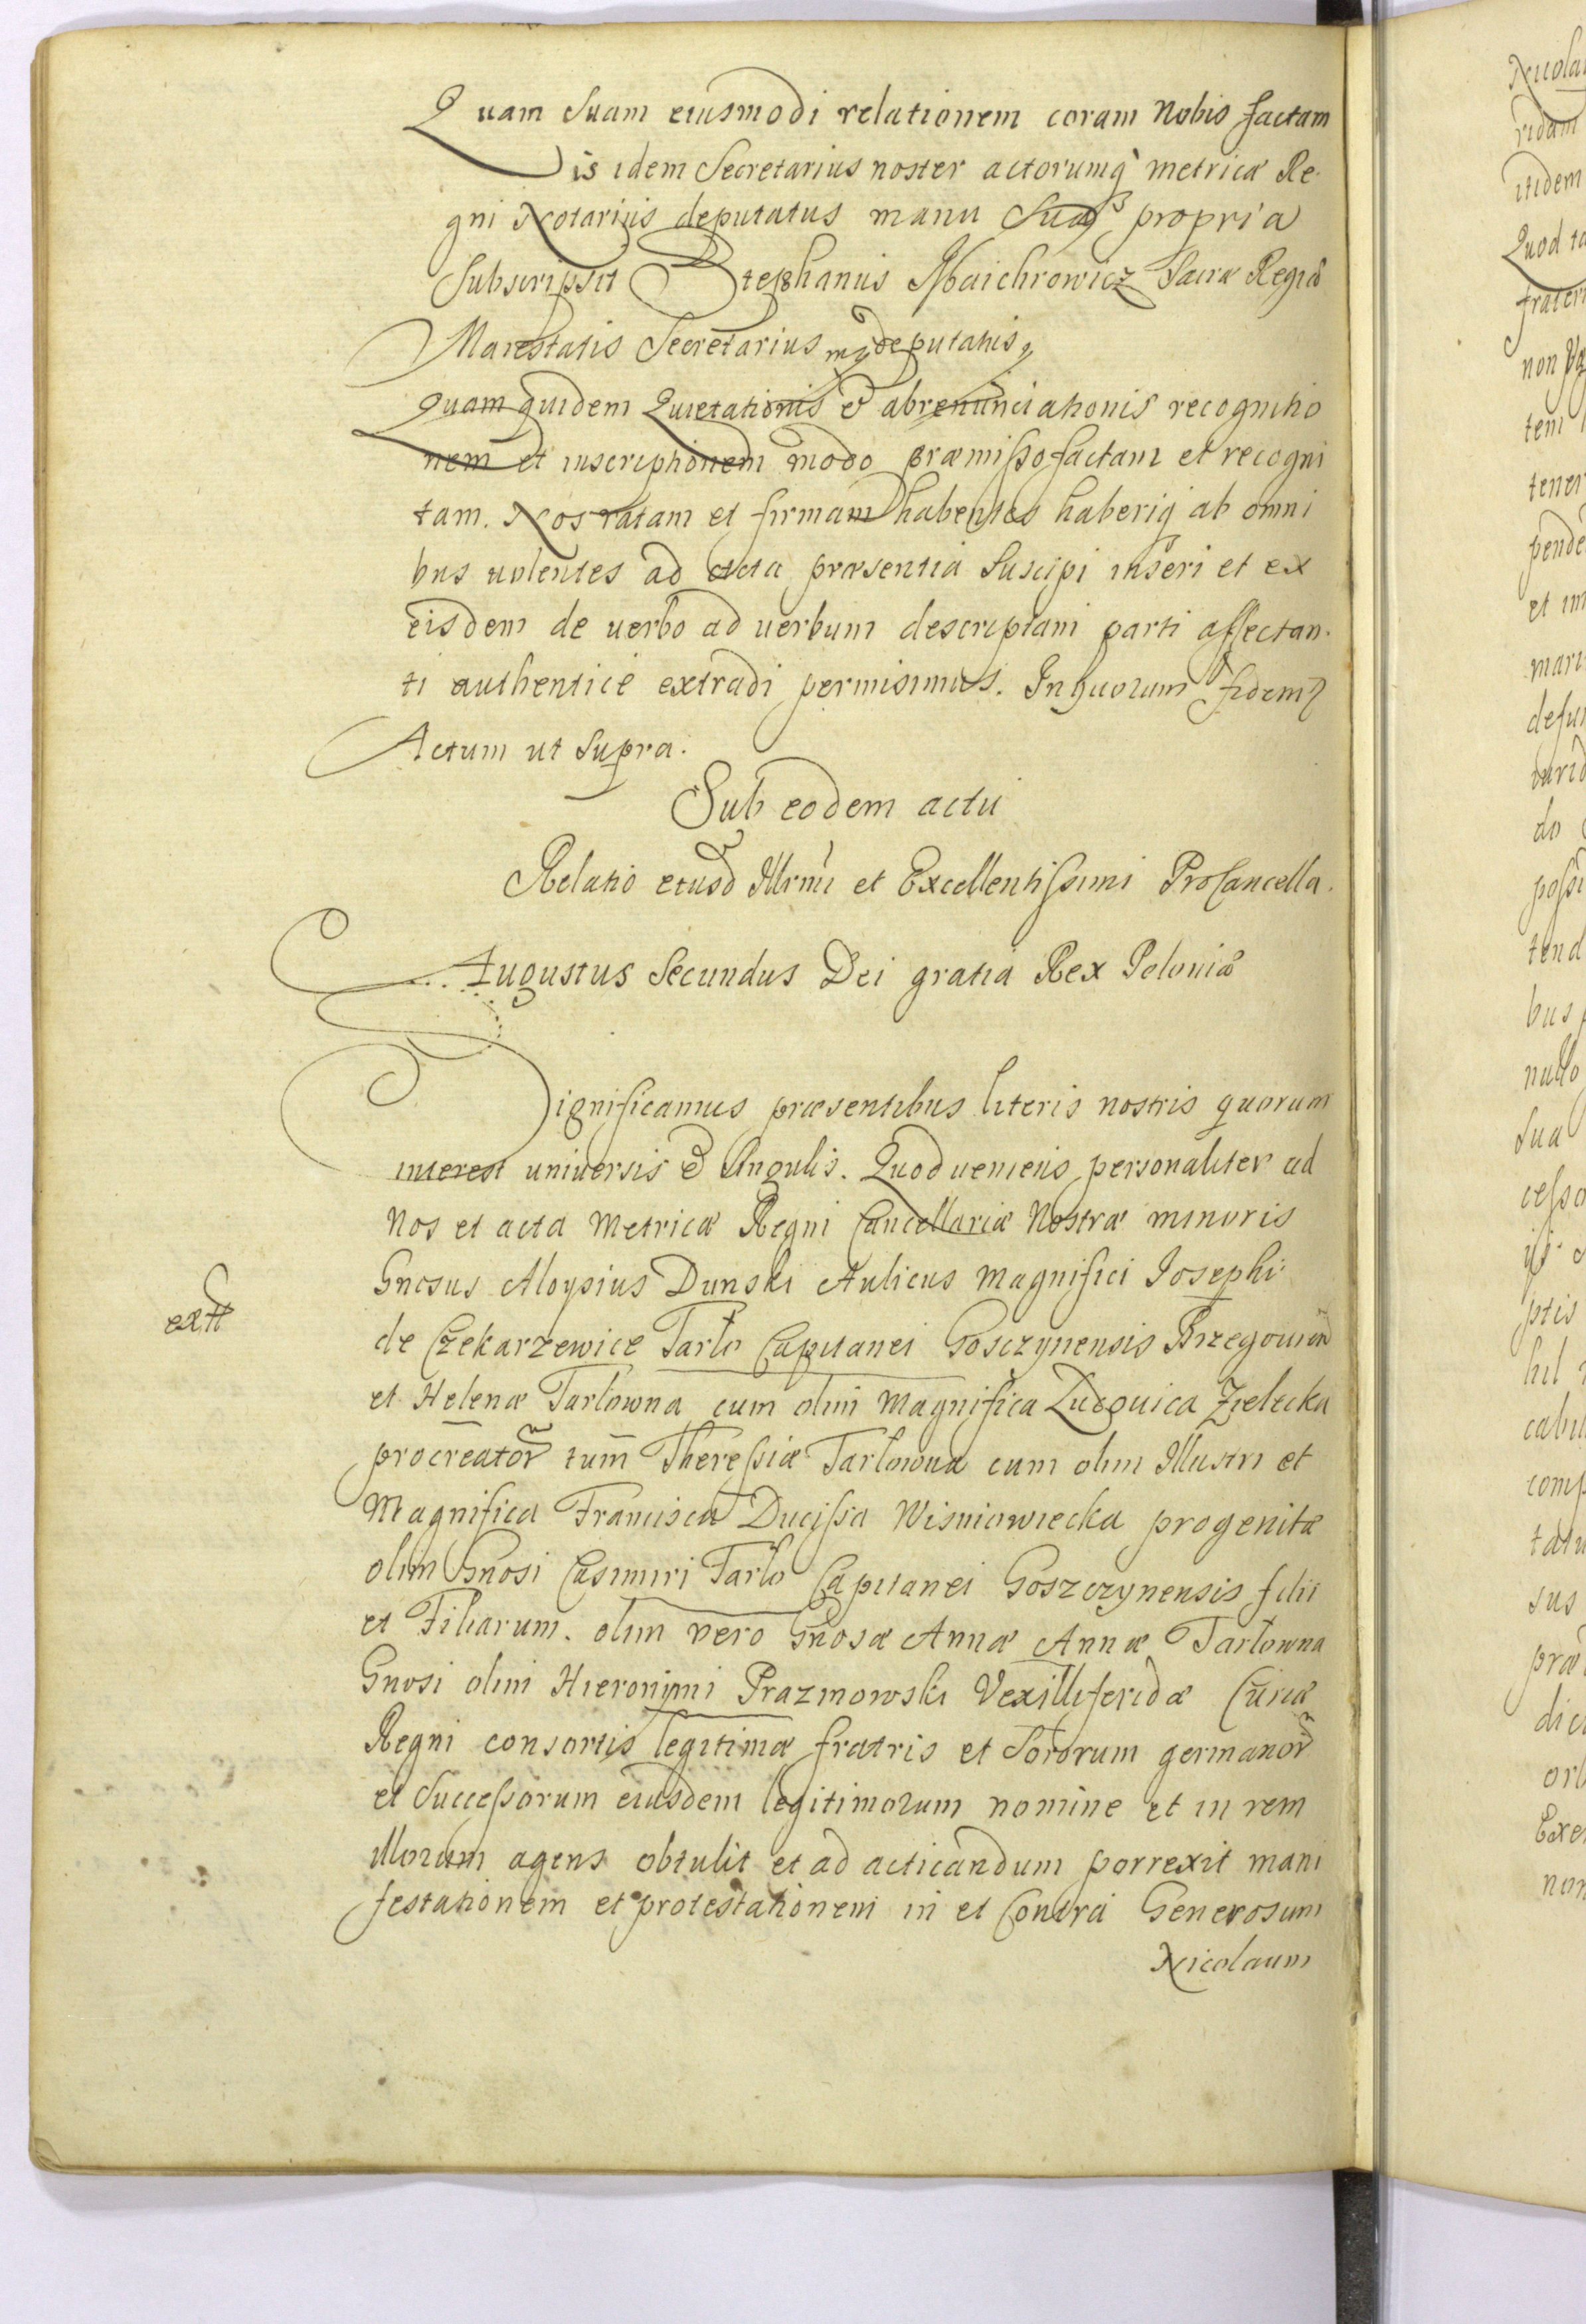 Quam Suam eiusmodi relationem coram Nobis factam
is idem Secretarius noster actorumq̀ metricæ Re-
gni Notarius deputatus manu Sua propria
Subscripsit Stephanus Sacræ Regiæ
Maiestatis Secretarius mp deputatus
Quam quidem Quietationis & abrenunciationis recognitio
nem et inscriptionem modo præmisso factam et recogni
tam. Nos ratam et firmam habentes haberiq ab omni
bus uolentes ad acta præsentia Suscipi inseri et ex
eisdem de uerbo ad uerbum descriptam parti affectan-
ti authenticè extradi permisimus. In quorum fidem
Actum ut Supra.
Sub eodem actu
Relatio eiusd Illrmi et Excellentissimi ProCancella.
Augustus Secundus Dei gratia Rex Poloniæ
Significamus præsentibus literis nostris quorum
interest universis & Singulis. Quod ueniens personaliter ad
Nos et acta Metricæ Regni Cancellariæ Nostræ minoris
Gnosus Aloysius Dunski Aulicus Magnifici Josephi
extt
de Czekarzewice Tarło Capitanei Gosczynensis
et Helenæ Tarłowna cum olim Magnifica Ludouica Zielecka
procreator tum Theressiæ Tarłowna cum olim Illustri et
Magnifica Francisca Ducissa Wisniowiecka progenitæ
olim Gnosi Casimiri Tarło Capitanei Goszczynensis filii
et Filiarum. olim vero Gnosæ Annæ Annæ Tarłowna
Gnosi olim Hieronimi Prazmowski Vexilliferidæ Curiæ
Regni consortis legitimæ fratris et Sororum germanor
et Successorum eiusdem legitimorum nomine et in rem
illorum agens obtulit et ad acticandum porrexit mani
festationem et protestationem in et Contra Generosum
Nicolaum